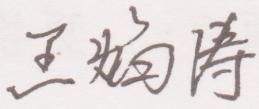 王炳涛